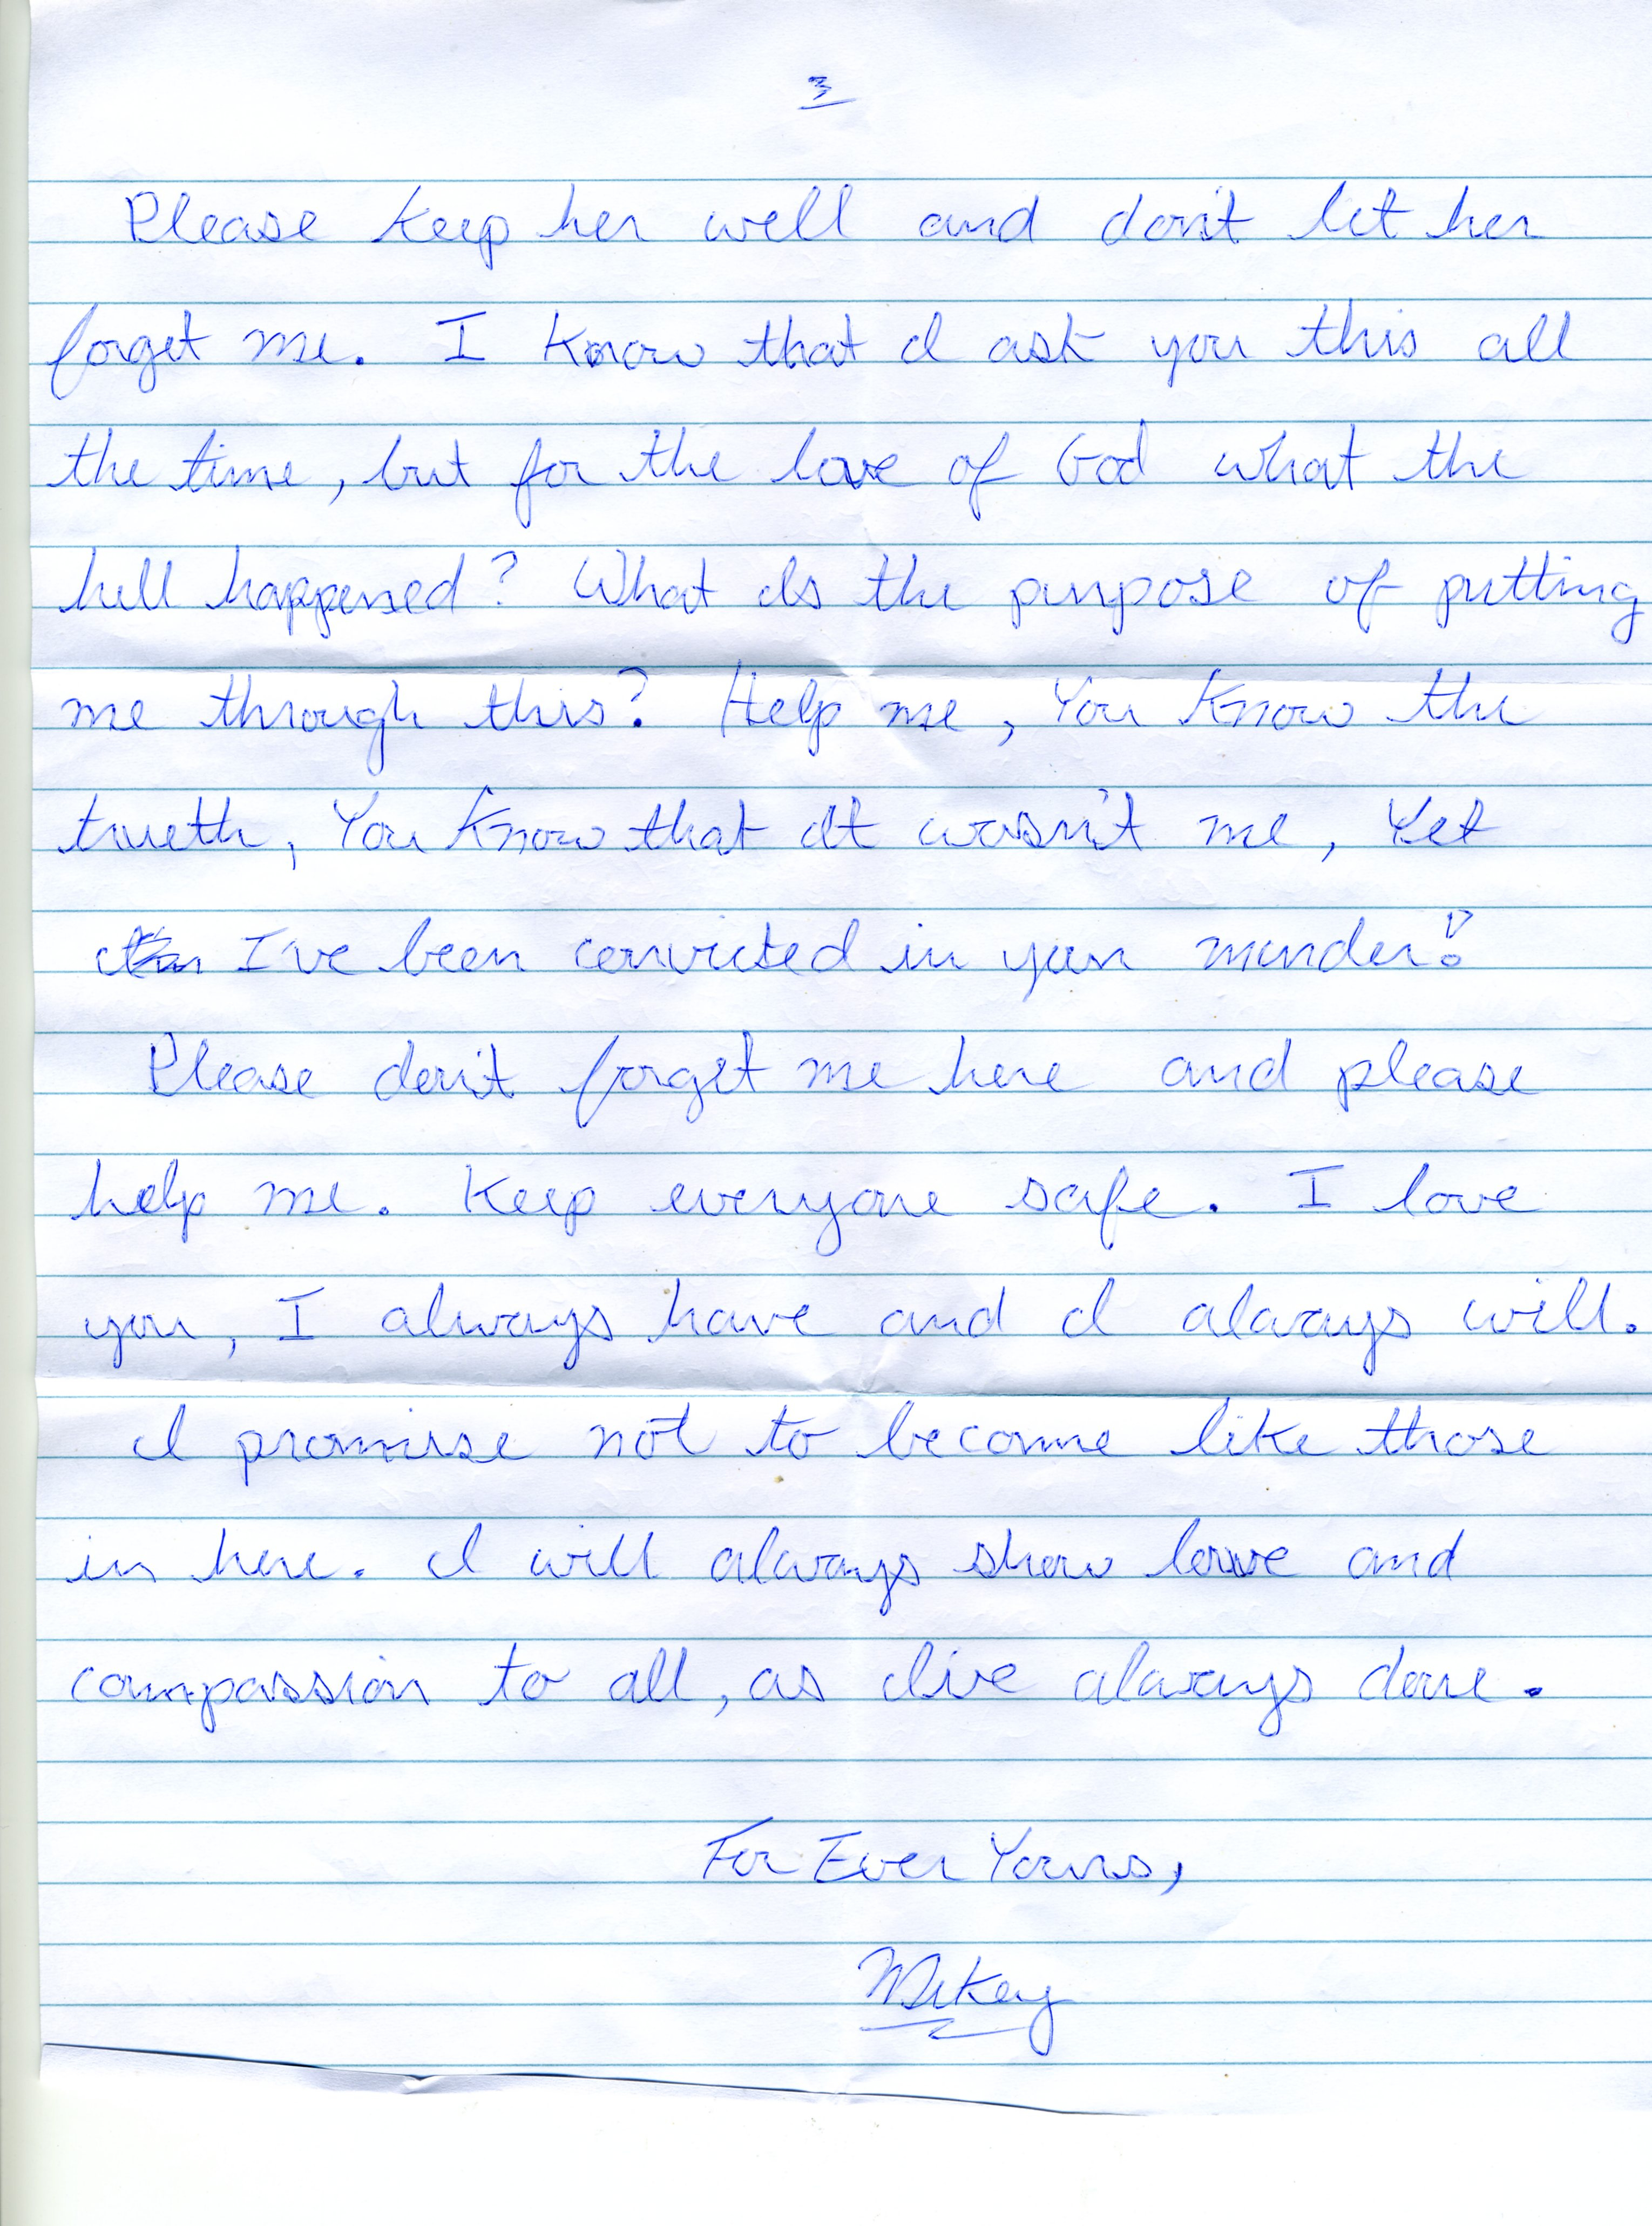 3
Please keep her well and don't let her
forget me. I know that I ask you this all
the time, but for the love of God what the
hell happened? What Is the purpose of putting
me through this? Help me, You Know the
trueth, You Know that It wasn't me, Yet
I've been convicted in your murder?
Please don't forget me here and please
help me. Keep everyone safe. I love
you, I always have and I always will.
I promise not to become like those
in here. I will always show love and
compassion to all, as I've always done.
For Ever Yours,
Mikey